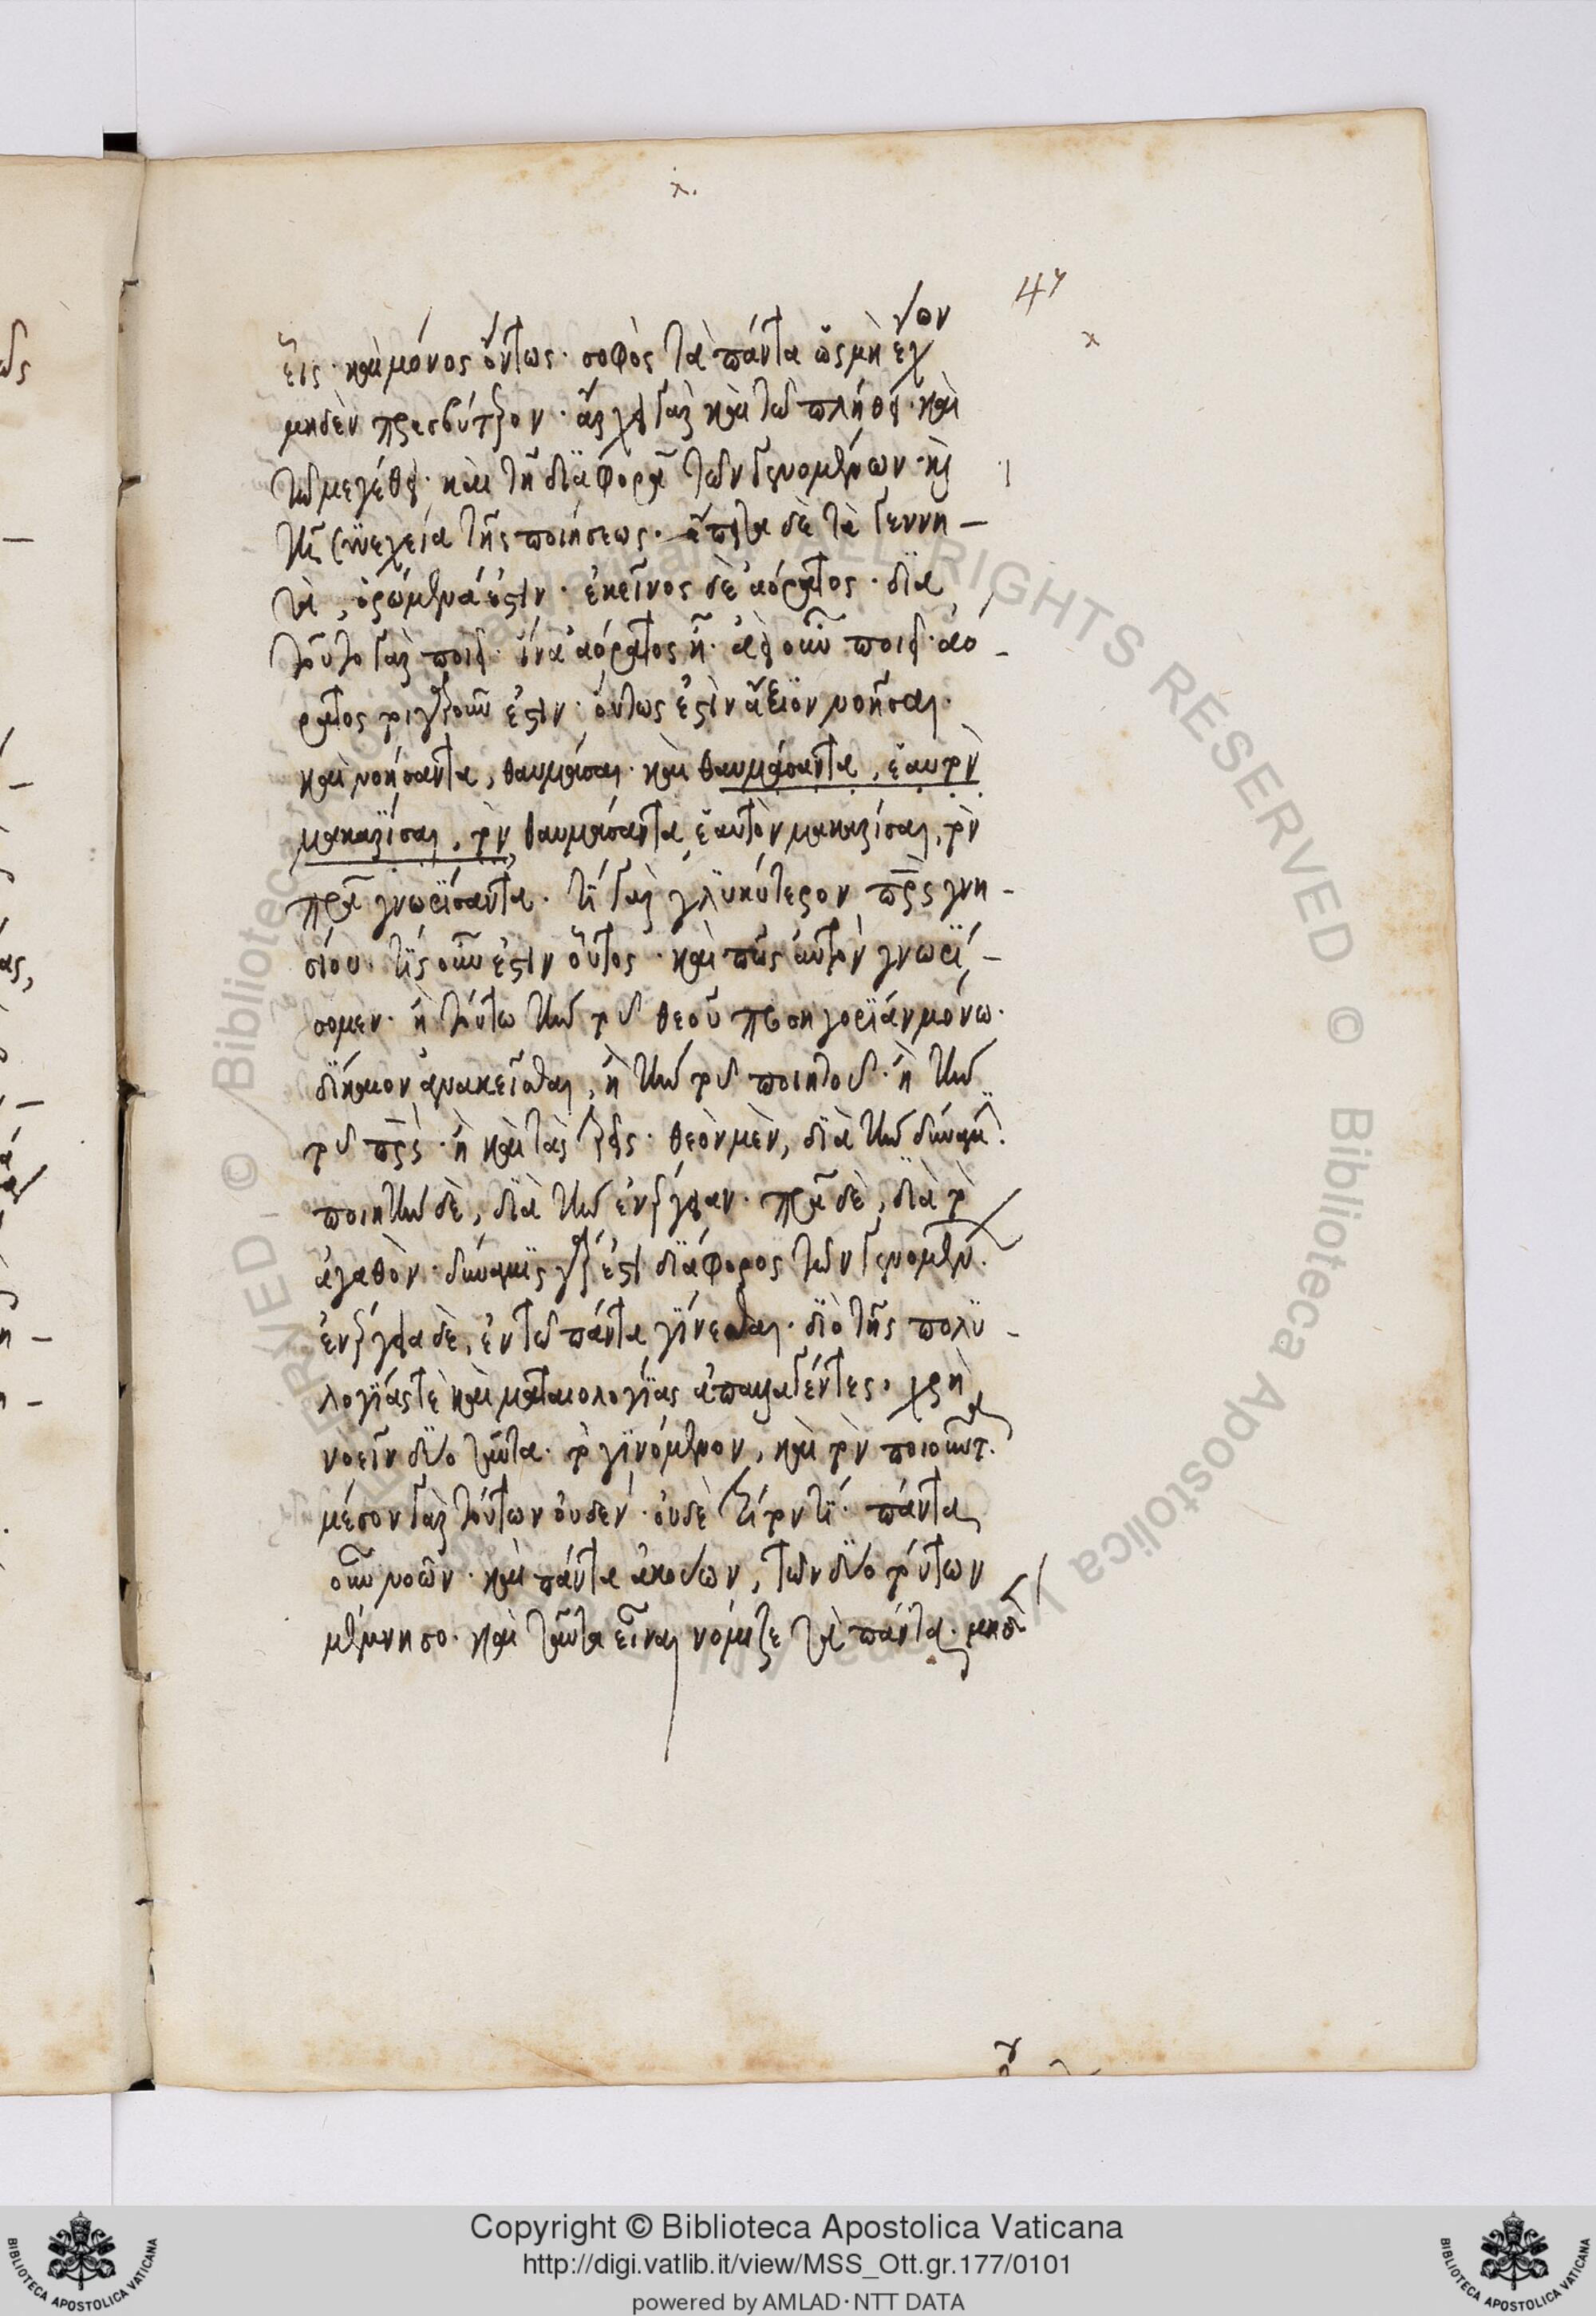 47
εἷς· καὶ μόνος ὄντως· σοφὸς τὰ πάντα ὡς μὴ ἔχον
μηδὲν πρεσβύτερον· ἄρχει γὰρ καὶ τῶ πλήθει· καὶ
τῶ μεγέθει· καὶ τῆ διαφορᾶ τῶν γενομένων· καὶ
τῆ συνεχεία τῆς ποιήσεως· ἔπειτα δὲ τὰ γεννη-
τὰ, ὁρώμενά ἐστιν· ἐκεῖνος δὲ ἀόρατος· διὰ
τοῦτο γὰρ ποιεῖ· ἵνα ἀόρατος ἦ· ἀεὶ οὖν ποιεῖ· ἀό-
ρατος τοιγαροῦν ἐστιν· οὕτως ἐστὶν ἄξιον νοῆσαι·
καὶ νοήσαντα, θαυμάσαι· καὶ θαυμάσαντα, ἑαυτὸν
μακαρίσαι, τὸν θαυμάσαντα ἑαυτὸν μακαρίσαι, τὸν
πατέρα γνωρίσαντα· τί γὰρ γλυκύτερον πατρὸς γνη-
σίου· τίς οὖν ἐστιν οὗτος· καὶ πῶς αὐτὸν γνωρί-
σομεν· ἢ τούτω τὴν τοῦ θεοῦ προσηγορίαν μόνω·
δίκαιον ἀνακεῖσθαι, ἢ τὴν τοῦ ποιητοῦ· ἢ τὴν
τοῦ πατρὸς· ἢ καὶ τὰς τρεῖς· θεὸν μὲν, διὰ τὴν δύναμιν·
ποιητὴν δὲ, διὰ τὴν ἐνέργειαν· πατέρα δὲ, διὰ τὸ
ἀγαθὸν· δύναμις γάρ ἐστι διάφορος τῶν γενομένων·
ἐνέργεια δὲ, ἐν τῶ πάντα γίνεσθαι· διὸ τῆς πολυ-
λογίας τὲ καὶ ματαιολογίας ἀπαλλαγέντες, χρὴ
νοεῖν δύο ταῦτα· τὸ γινόμενον, καὶ τὸν ποιοῦντα·
μέσον γὰρ τούτων οὐδέν· οὐδὲ τρίτον τί· πάντα
οὖν νοῶν· καὶ πάντα ἀκούων, τῶν δύο τούτων
μέμνησο· καὶ ταῦτα εἶναι νόμιζε τὰ πάντα· μηδὲν
Copyright © Biblioteca Apostolica Vaticana
http://digi.vatlib.it/view/MSS_Ott.gr.177/0101
powered by AMLAD·NTT DATA